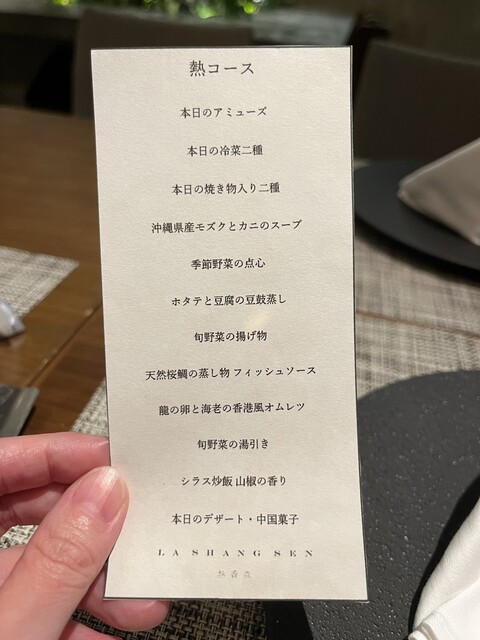 熱コース
本日のアミューズ
本日の冷菜二種
本日の焼き物入り二種
沖縄県産モズクとカニのスープ
季節野菜の点心
ホタテと豆腐の豆鼓蒸し
旬野菜の揚げ物
天然桜鯛の蒸し物 フィッシュソース
龍の卵と海老の香港風オムレツ
旬野菜の湯引き
シラス炒飯 山椒の香り
本日のデザート・中国菓子
LA SHANG SEN